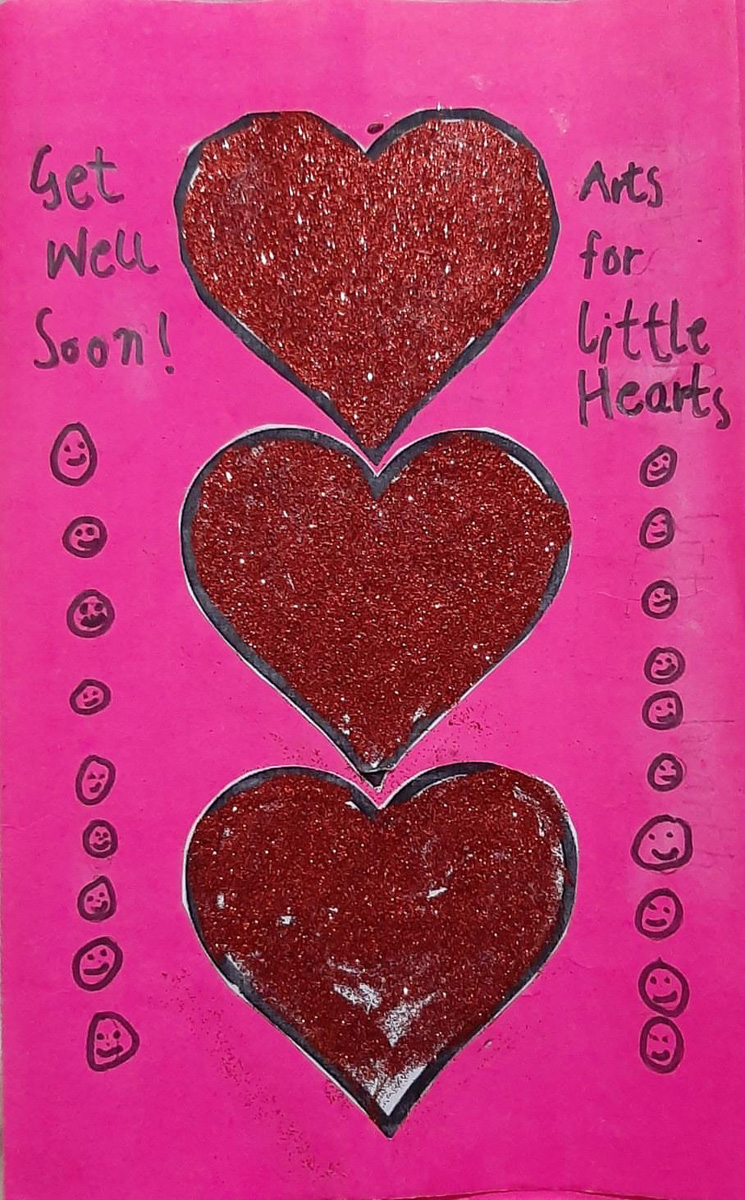 Get
Well
Soon!
Arts
for
Little
Hearts